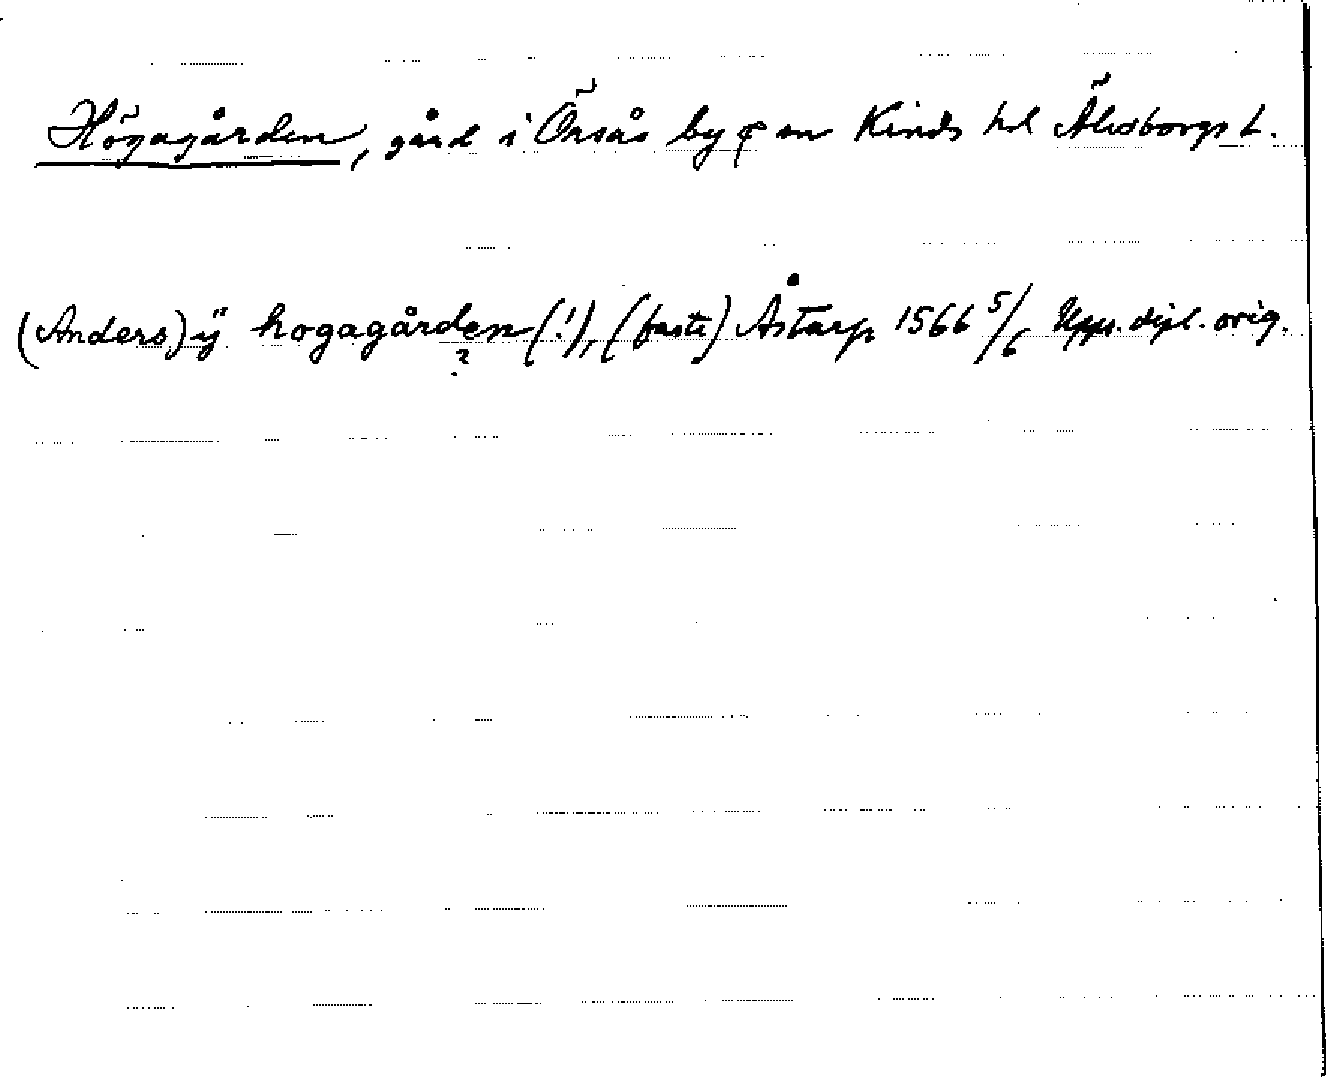 Högagården, gård i Örsås by o sn Kinds hd Älvsborgs L.
(Anders) ÿ hogagården (!), (faste) Åstarp 1566 5/6 Upps. dipl. orig.
?